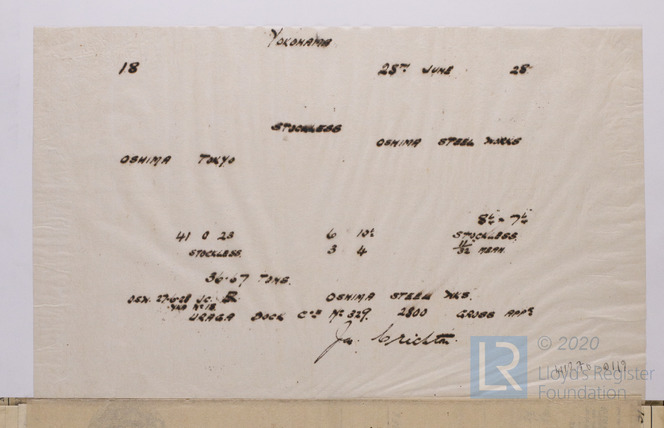 YOKOHAMA
18 28TH JUNE 28
STOCKLESS
OSHIMA STEEL WORKS
OSHIMA TOKYO
41 0 23 6 10½ STOCKLESS.
STOCKLESS. 3 4 MEAN.
36.67 TONS.
OSHIMA STEEL WKS.
URAGA DOCK Cos No 329. 2800 GROSS APPX
Jas. Crichton.
LR
© 2020
Lloyd's Register
Foundation